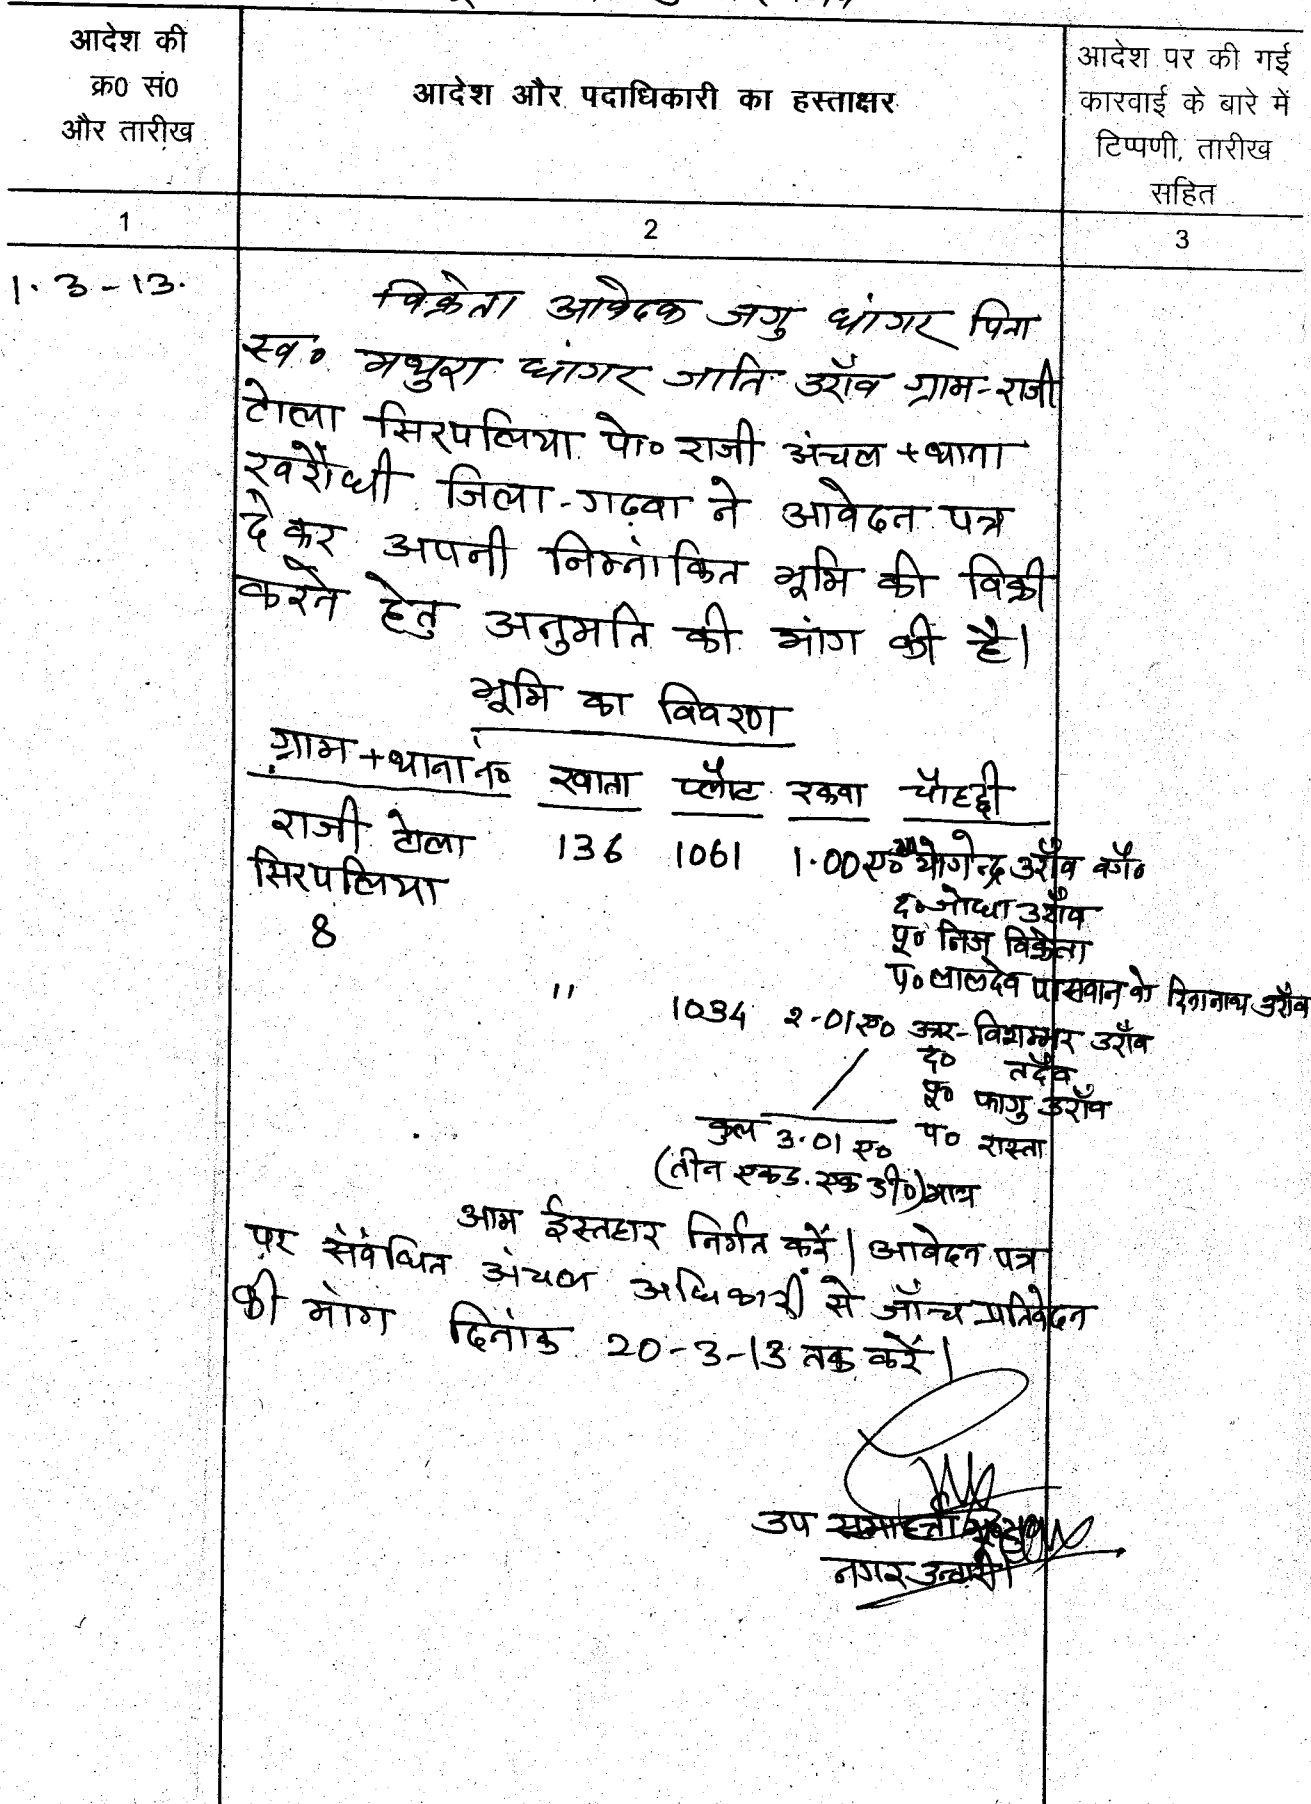 आदेश की
क्र0 सं0
और तारीख
आदेश और पदाधिकारी का हस्ताक्षर
आदेश पर की गई
कारवाई के बारे में
टिप्पणी, तारीख
सहित
1
2
3
1.3-13.
विक्रेता आवेदक जगु धांगर पिता
स्व० मथुरा धांगर जाति उराँव ग्राम-राजी
टोला सिरपलिया पो० राजी अंचल + थाना
खरौंधी जिला-गढवा ने आवेदन पत्र
देकर अपनी निम्नांकित भूमि की विक्री
करने हेतु अनुमति की मांग की है।
भूमि का विवरण
ग्राम + थाना नं० खाता प्लौट रकवा चौहद्दी
राजी टोला 136 1061 1.00ए० योगेन्द्र उराँव वगै०
सिरपलिया
द० जोधा उराँव
8
पू० निज विक्रेता
प० लालदेव पासवान वो उराँव
" 1034 2-01ए० उत्तर-विशम्भर उराँव
द० तदैव
पू० फागु उराँव
कुल 3.01 ए० प० रास्ता
(तीन एकड. एक डी०) मात्र
आम ईस्तहार निर्गत करें। आवेदन पत्र
पर संबंधित अंचल अधिकारी से जाँच प्रतिवेदन
की मांग दिनांक 20-3-13 तक करें।
उप समाहर्ता
नगर उन्टारी।